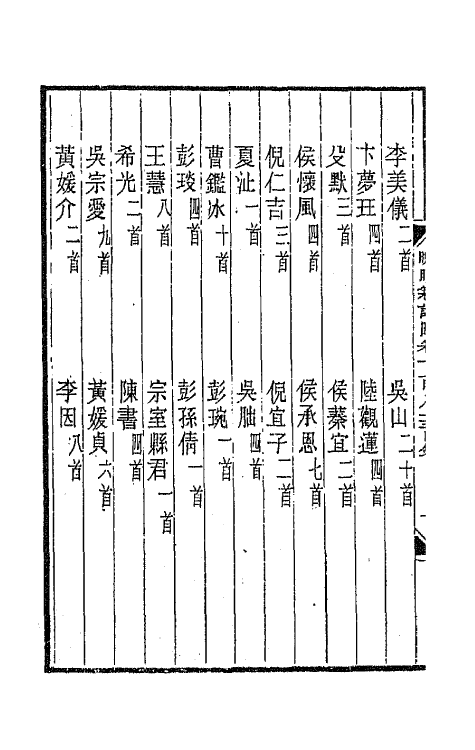 李美儀二首　吳山二十首
卞夢玨四首　陸觀蓮四首
殳默三首　侯蓁宜二首
侯懷風四首　侯承恩七首
倪仁吉三首　倪宜子二首
夏沚一首　吳朏四首
曹鑑冰十首　彭琬一首
彭琰四首　彭孫倩一首
王慧八首　宗室縣君一首
希光二首　陳書四首
吳宗愛九首　黃媛貞六首
黃媛介二首　李因八首